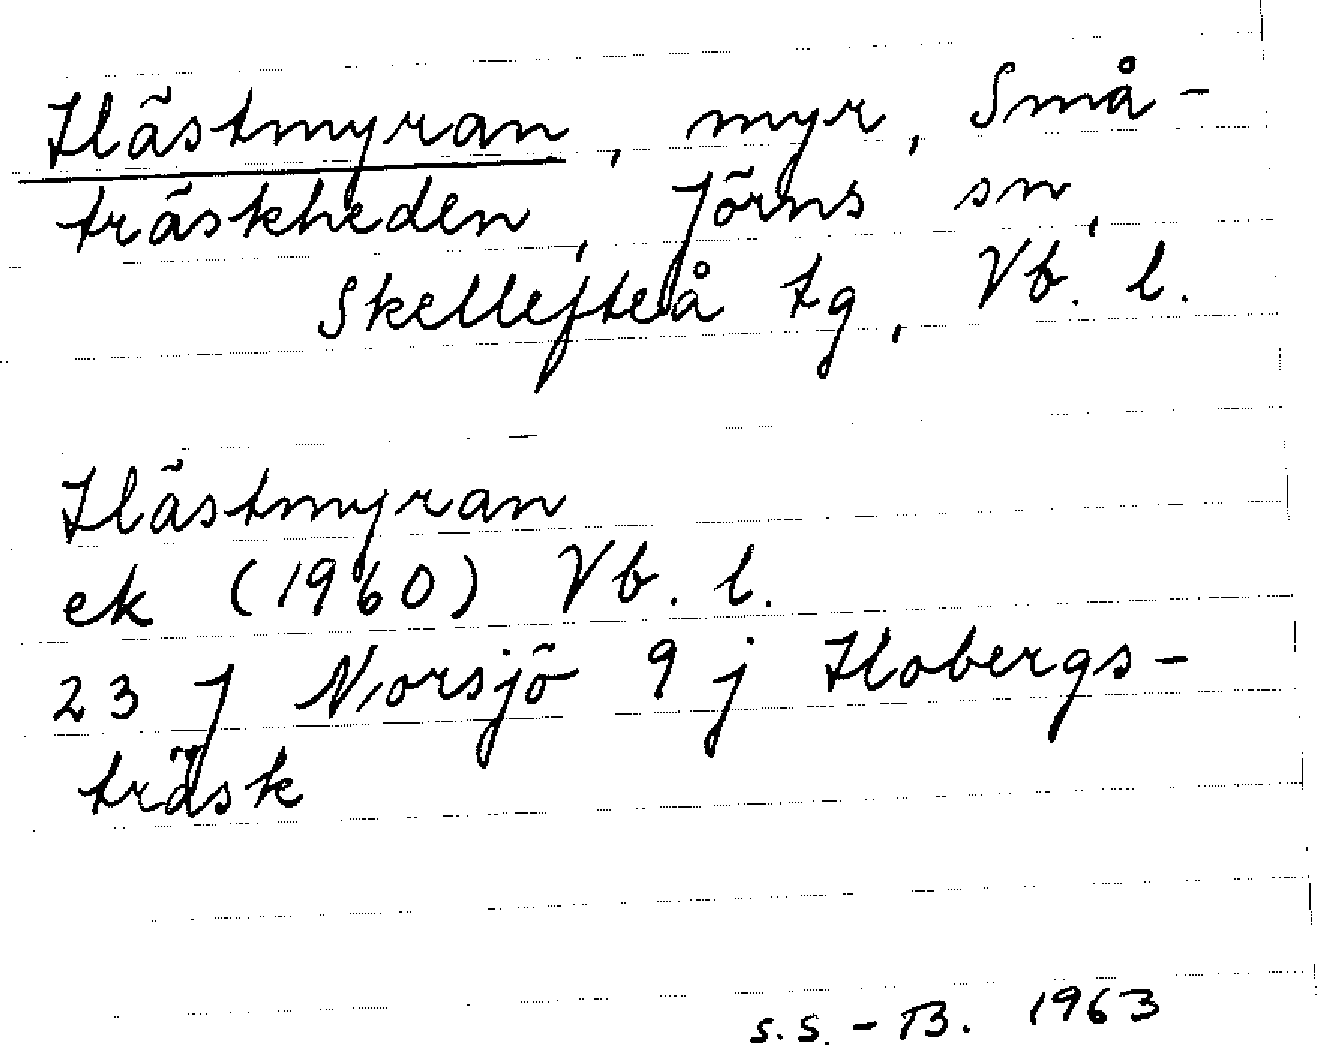 Hästmyran, myr, Små-
träskheden, Jörns sn,
Skellefteå tg, Vb. l.
Hästmyran
ek (1960) Vb. l.
23 J Norsjö 9 j Hobergs-
träsk
S.S.-B. 1963